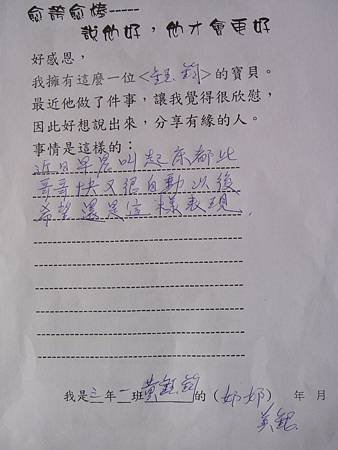 愈誇愈棒------
說他好，他才會更好
好感恩，
我擁有這麼一位<鈺莉>的寶貝。
最近他做了件事，讓我覺得很欣慰，
因此好想說出來，分享有緣的人。
事情是這樣的：
近日早晨叫起床都比
哥哥快又很自動以後
希望還是這樣表現.
我是三年一班黃鈺莉的（ ） 年 月